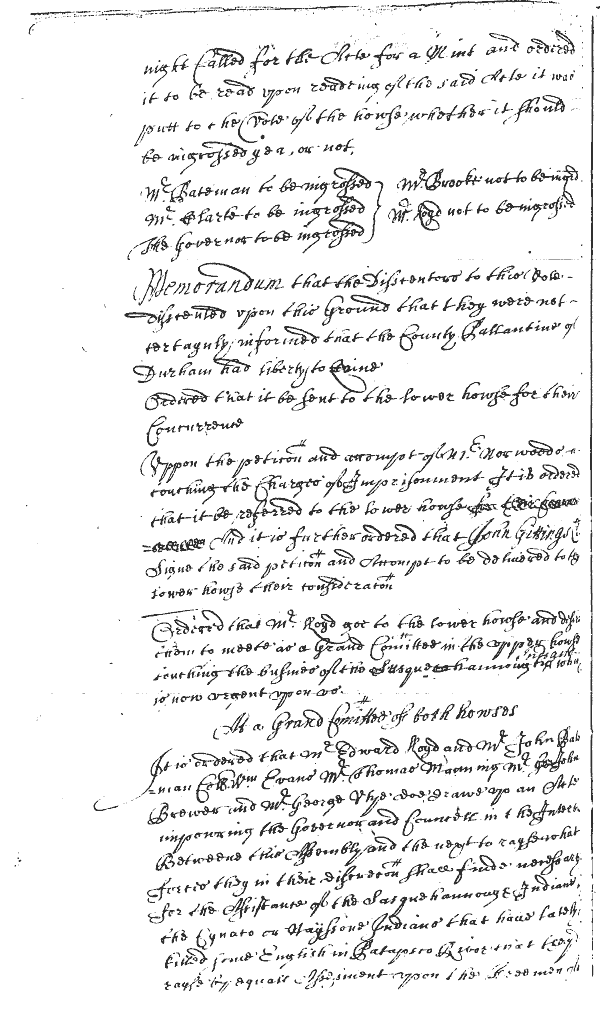 night Called for the Acte for a Mint and ordered
it to be read upon reading of the said Acte it was
putt to the Vote of the howse whether it should
be ingrossed yea, or not,
Mr Bateman to be ingrossed } Mr Brooke not to be ingrd
Mr Clarke to be ingrossed Mr Lloyd not to be ingrossed
The Governor to be ingrossed
Memorandum that the Dissenters to this Vote
dissented upon this Ground that they were not
certaynly informed that the County Pallantine of
Durham had liberty to Coine
Ordered that it be sent to the lower howse for their
Concurrence
Uppon the peticon and accompt of Mr Norwoods
touching the Charges of Imprisonment It is ordered
that it be referred to the lower howse
And it is further ordered that John Gittings
Signe the said peticon and Accompt to be delivered to the
lower howse their consideracon
Ordered that Mr Lloyd goe to the lower howse and desire
them to meete as a Grand Comittee in the upper howse
touching the busines of the Susquehannough Indians which
is now urgent upon us
At a Grand Comittee of both howses
It is ordered that Mr Edward Lloyd and Mr John Bate
man Coll Wm Evans Mr Thomas Manning Mr John
Brewer and Mr George Utye doe drawe up an Acte
impowring the Governor and Councell in the Interim
Betweene this Assembly and the next to rayse what
forces they in their discrecon shall finde necessary
for the Assistance of the Sasquehannough Indians
the Cynaco or Nayssone Indians that have lately
killed some English in Patapsco River that they
rayse by equall Assesment upon the Freemen of